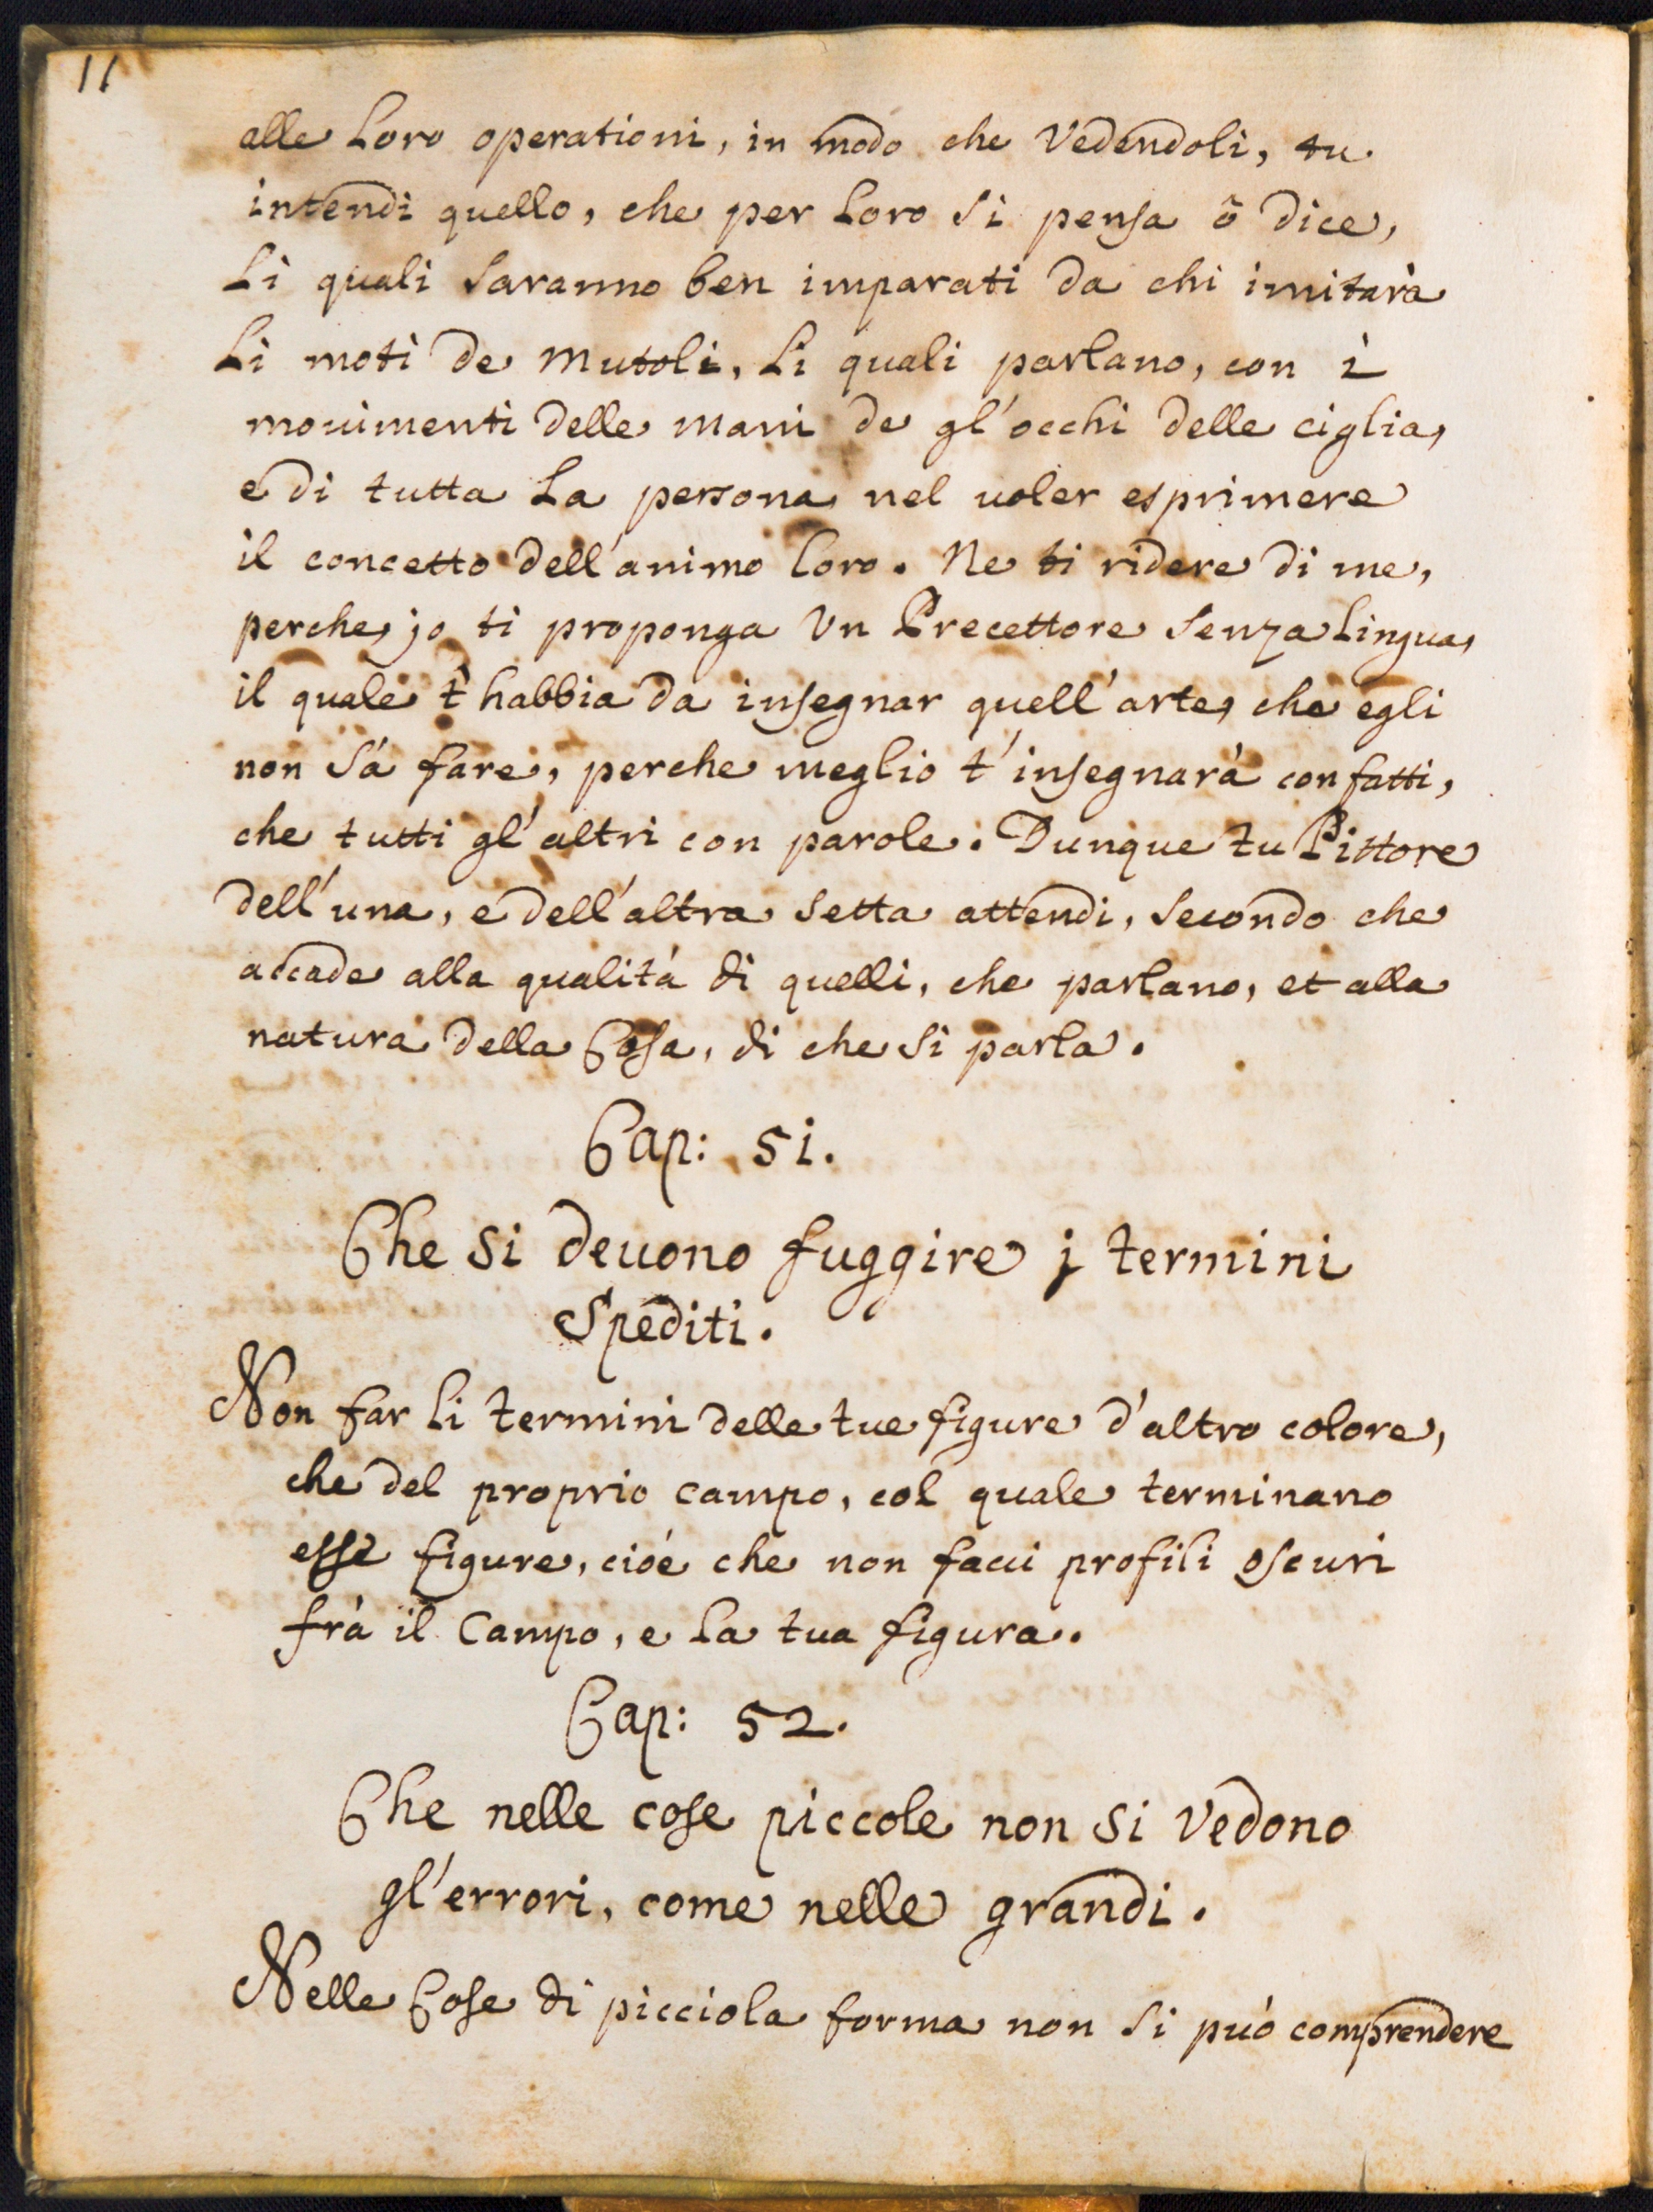 11
alle Loro operationi, in modo che Vedendoli, tu
intendi quello, che per Loro si pensa ò dice,
Li quali saranno ben imparati da chi imitarà
Li moti de Mutoli, Li quali parlano, con i
mouimenti delle mani de gl'occhi delle ciglia,
e di tutta La persona nel uoler esprimere
il concetto dell'animo loro. Ne ti ridere di me,
perche jo ti proponga Vn Precettore senza Lingua,
il quale t'habbia da insegnar quell'arte, che egli
non sá fare, perche meglio t'insegnará con fatti,
che tutti gl'altri con parole. Dunque tu Pittore
dell'una, e dell'altra setta attendi, secondo che
accade alla qualitá di quelli, che parlano, et alla
natura della Cosa, di che si parla.
Cap: 51.
Che si deuono fuggire j termini
Spediti.
Non far Li termini delle tue figure d'altro colore,
che del proprio campo, col quale terminano
esse figure, cioé che non facci profili oscuri
frà il Campo, e La tua figura.
Cap: 52.
Che nelle cose piccole non si Vedono
gl'errori, come nelle grandi.
Nelle Cose di picciola forma non si puó comprendere